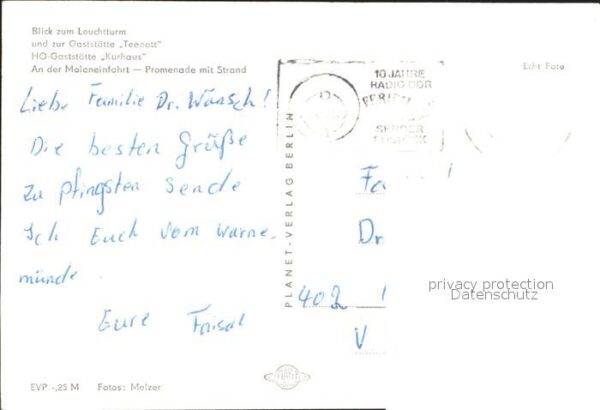 Blick zum Leuchtturm
und zur Gaststätte „Teepott"
HO-Gaststätte „Kurhaus"
An der Moleneinfahrt — Promenade mit Strand
Echt Foto
10 JAHRE
RADIO DDR
FERIEN
SENDER
Liebe Familie Dr. Wünsch!
Die besten Grüße
zu Pfingsten sende
Ich Euch vom Warne-
münde
Eure Faisal
PLANET-VERLAG BERLIN
Fa
Dr.
402
V
privacy protection
Datenschutz
EVP -,25 M Fotos: Melzer